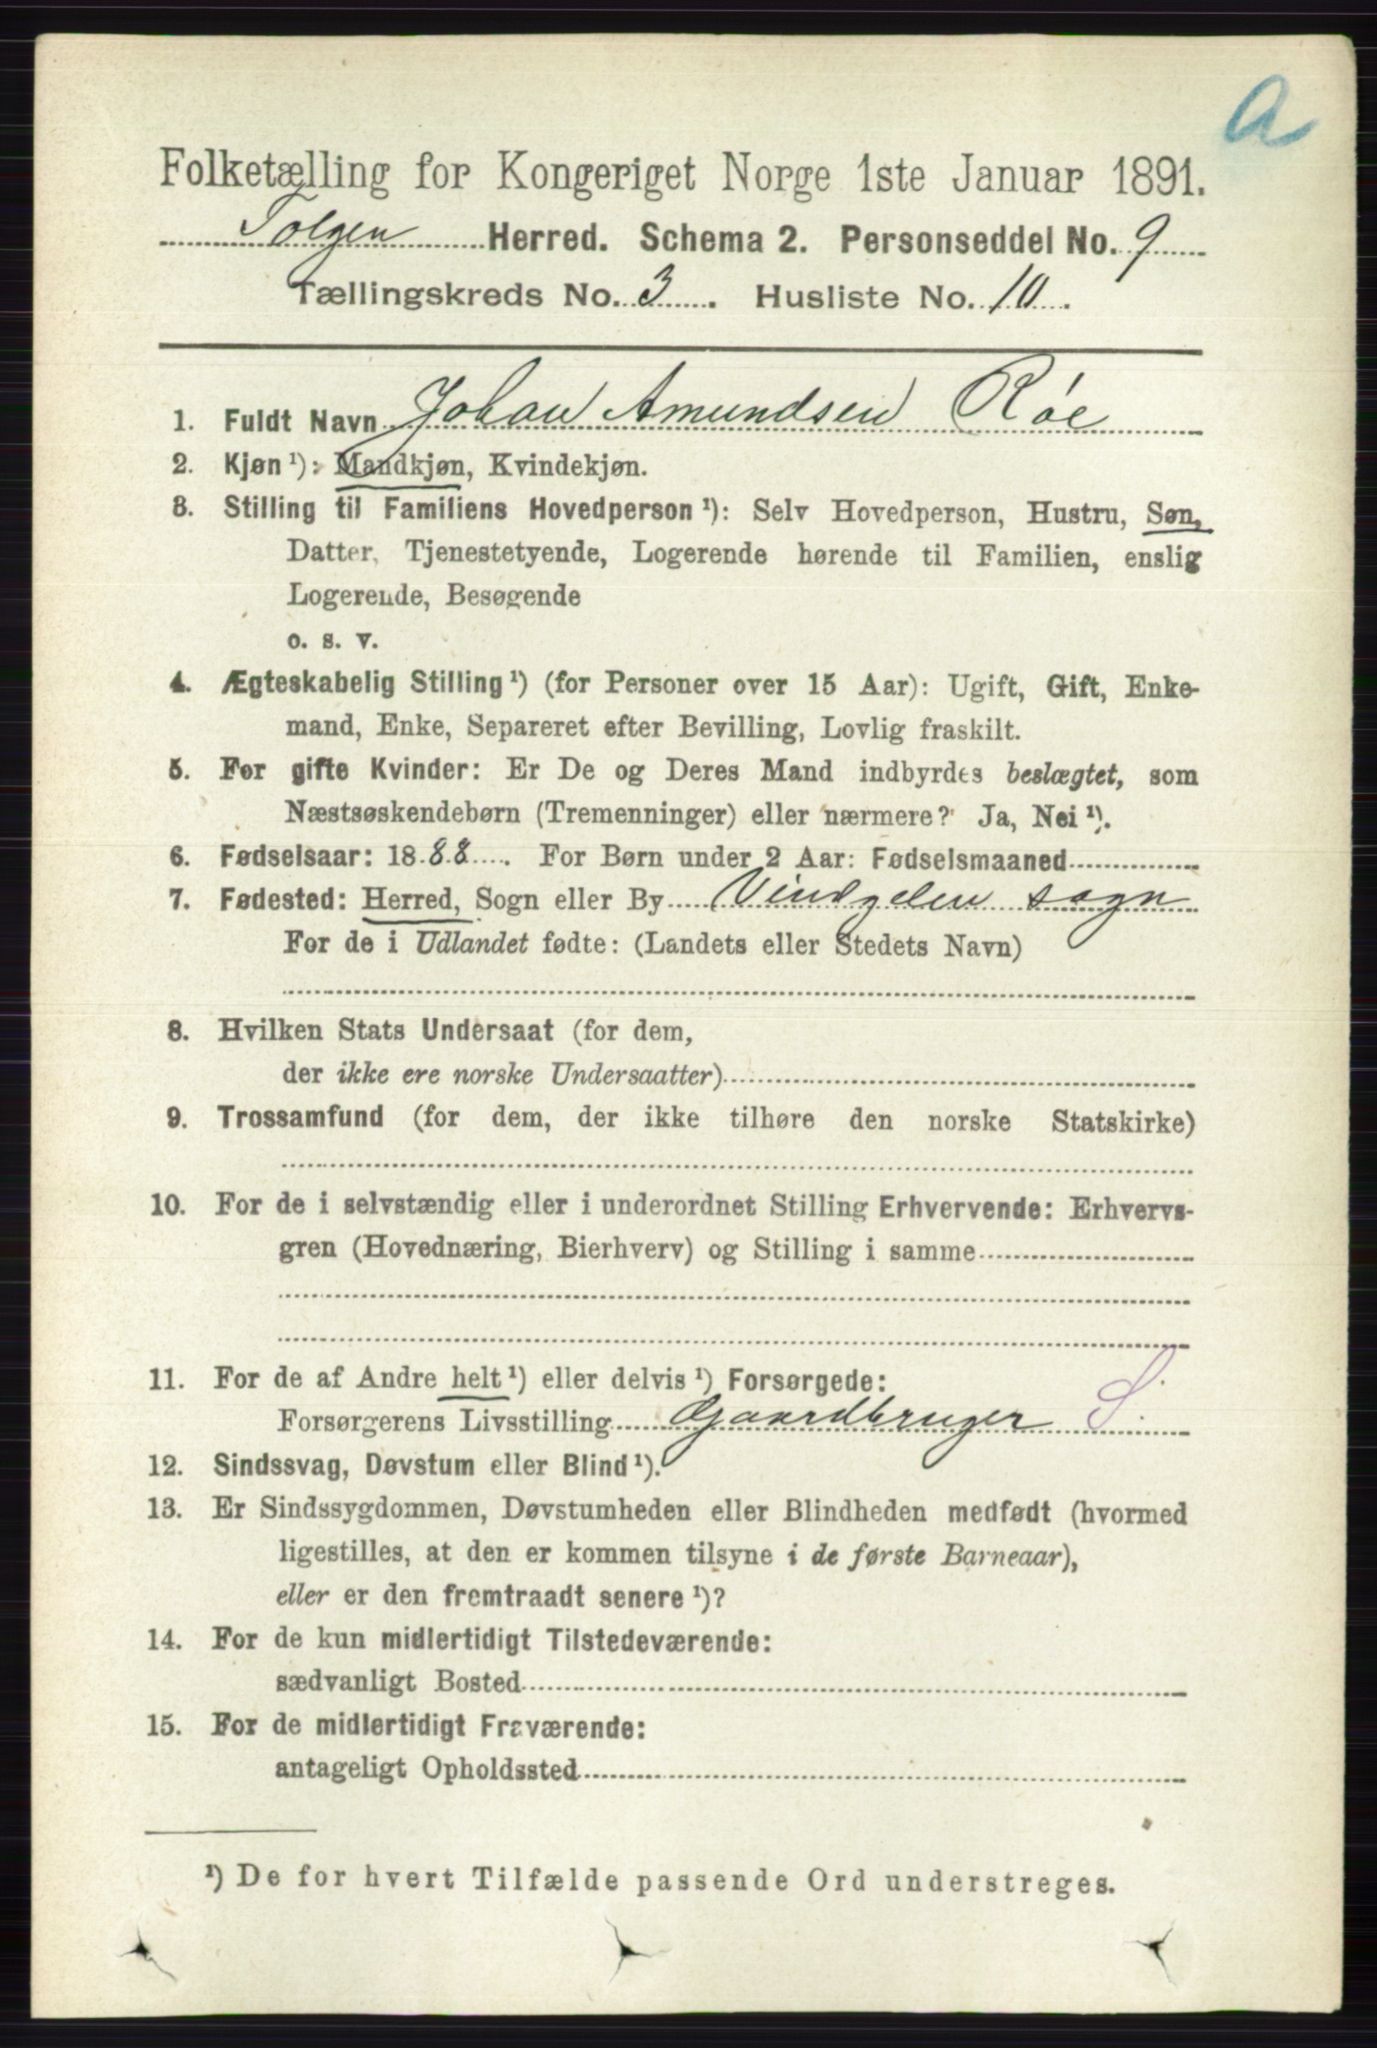 a
Folketælling for Kongeriget Norge 1ste Januar 1891.
Tolgen Herred. Schema 2. Personseddel No. 9
Tællingskreds No. 3. Husliste No. 10.
1. Fuldt Navn Johan Amundsen Røe
2. Kjøn ¹): Mandkjøn, Kvindekjøn.
3. Stilling til Familiens Hovedperson ¹): Selv Hovedperson, Hustru, Søn,
Datter, Tjenestetyende, Logerende hørende til Familien, enslig
Logerende, Besøgende
o. s. v.
4. Ægteskabelig Stilling ¹) (for Personer over 15 Aar): Ugift, Gift, Enke-
mand, Enke, Separeret efter Bevilling, Lovlig fraskilt.
5. For gifte Kvinder: Er De og Deres Mand indbyrdes beslægtet, som
Næstsøskendebørn (Tremenninger) eller nærmere? Ja, Nei ¹).
6. Fødselsaar: 1888. For Børn under 2 Aar: Fødselsmaaned
7. Fødested: Herred, Sogn eller By Vindgelen sogn
For de i Udlandet fødte: (Landets eller Stedets Navn)
8. Hvilken Stats Undersaat (for dem,
der ikke ere norske Undersaatter)
9. Trossamfund (for dem, der ikke tilhøre den norske Statskirke)
10. For de i selvstændig eller i underordnet Stilling Erhvervende: Erhvervs-
gren (Hovednæring, Bierhverv) og Stilling i samme
11. For de af Andre helt ¹) eller delvis ¹) Forsørgede:
Forsørgerens Livsstilling Gaardbruger S.
12. Sindssvag, Døvstum eller Blind ¹).
13. Er Sindssygdommen, Døvstumheden eller Blindheden medfødt (hvormed
ligestilles, at den er kommen tilsyne i de første Barneaar),
eller er den fremtraadt senere ¹)?
14. For de kun midlertidigt Tilstedeværende:
sædvanligt Bosted
15. For de midlertidigt Fraværende:
antageligt Opholdssted
¹) De for hvert Tilfælde passende Ord understreges.